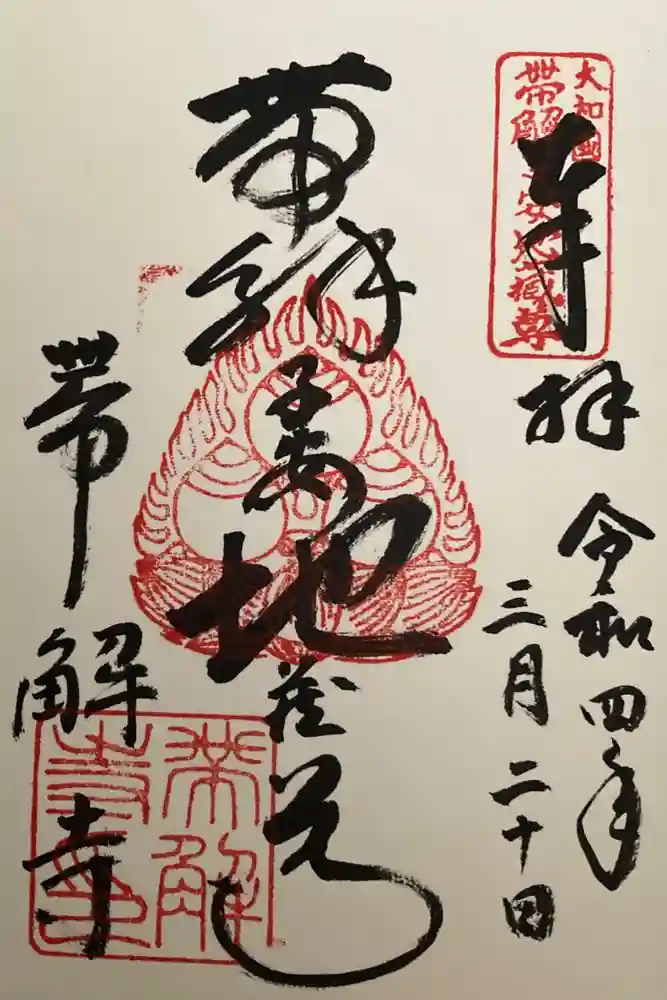 奉拝
令和四年
三月二十日
大和國
帯解子安地蔵尊
帯解子安地蔵尊
帯解寺
帯解寺印